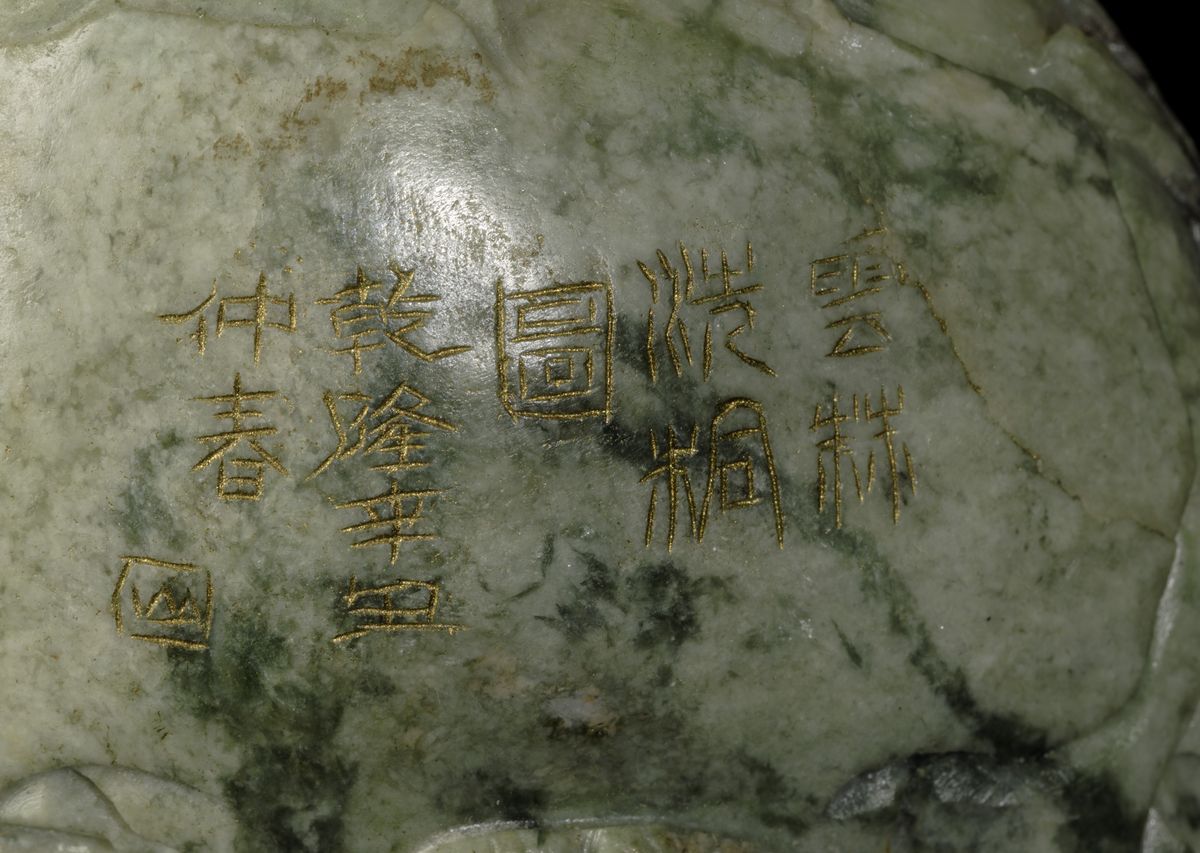 雲林
洗桐
圖
乾隆辛丑
仲春